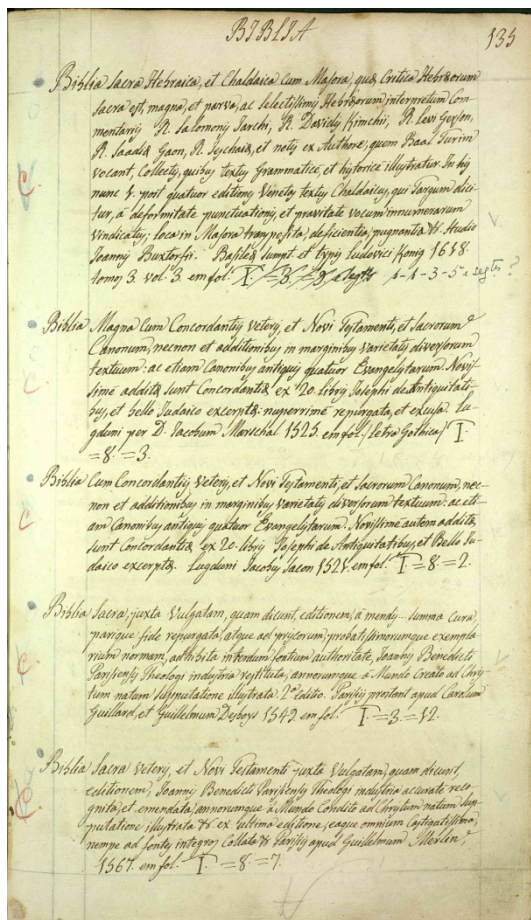 BIBLIA
135
Biblia Sacra Hebraica, et Chaldaica Cum Masora, quæ Critica Hebræorum
sacra est, magna, et parva, ac selectissimis Hebræorum interpretum Com-
mentariis R. Salomonis Jarchi, R. Davidis Kimchii, R. Levi Gerson,
R. Saadiæ Gaon, R. Jeschaiæ, et notis ex Authore, quem Baal Turim
vocant, Collectis, quibus textus Grammatice, et historice illustratur. In his
nunc 1. post quatuor editiones Venetas textus Chaldaicus, qui Targum dici-
tur, a deformitate punctuationis, et pravitate vocum innumerarum
vindicatus; loca in Masora transposita, deficientia, pugnantia &. studio
Joannis Buxtorfii. Basileæ sumpt. et typis Ludovici König 1618.
tomos 3. vol. 3. em fol. 1-1-3-5 e segtes ?
Biblia Magna Cum Concordantiis Veteris, et Novi Testamenti, et Sacrorum
Canonum, necnon et additionibus in marginibus varietatis diversorum
textuum: ac etiam Canonibus antiquis quatuor Evangelistarum. Novis-
sime additæ sunt Concordantiæ ex 20. libris Josephi de Antiquitati-
bus, et bello Judaico excerptæ: nuperrime repurgata, et excusa. Lu-
gduni per D. Jacobum Mareschal 1525. em fol. / Letra Gothica / I
=8.=3.
Biblia Cum Concordantiis Veteris, et Novi Testamenti, et Sacrorum Canonum, nec-
non et additionibus in marginibus varietatis diversorum textuum: ac eti-
am Canonibus antiquis quatuor Evangelistarum. Novissime autem additæ
sunt Concordantiæ ex 20. libris Josephi de Antiquitatibus, et Bello Ju-
daico excerptæ. Lugduni Jacobus Sacon 1521. em fol. I=8=2.
Biblia Sacra, juxta Vulgatam, quam dicunt, editionem, a mendis summa cura,
parique fide repurgata, atque ad priscorum, probatissimorumque exempla-
rium normam, adhibita interdum fontium authoritate, Joannis Benedicti
Parisiensis Theologi industria restituta, annorumque a Mundo Creato ad Chris-
tum natum supputatione illustrata. 2ª editio. Parisiis prostant apud Carolam
Guillard, et Guillelmum Desboys 1549. em fol. I=3=12.
Biblia Sacra Veteris, et Novi Testamenti juxta Vulgatam, quam dicunt,
editionem, Joannis Benedicti Parisiensis Theologi industria accurate reco-
gnita, et emendata, annorumque a Mundo Condito ad Christum natum sup-
putatione illustrata &. ex ultima editione, eaque omnium Castigatissima,
nempe ad fontes integros Collata &. Parisiis apud Guillelmum Merlin,
1567. em fol. I=8=7.
C.
C
C
C.
C.